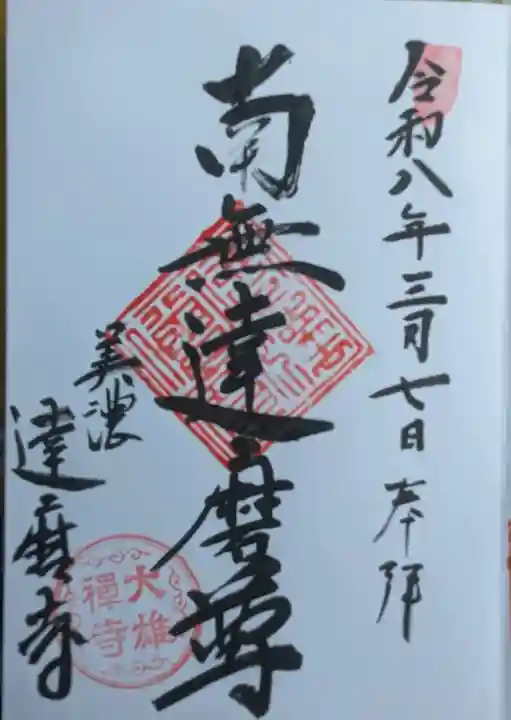 令和八年三月七日 奉拝
南無達磨尊
美濃
達磨寺
大雄
禪寺